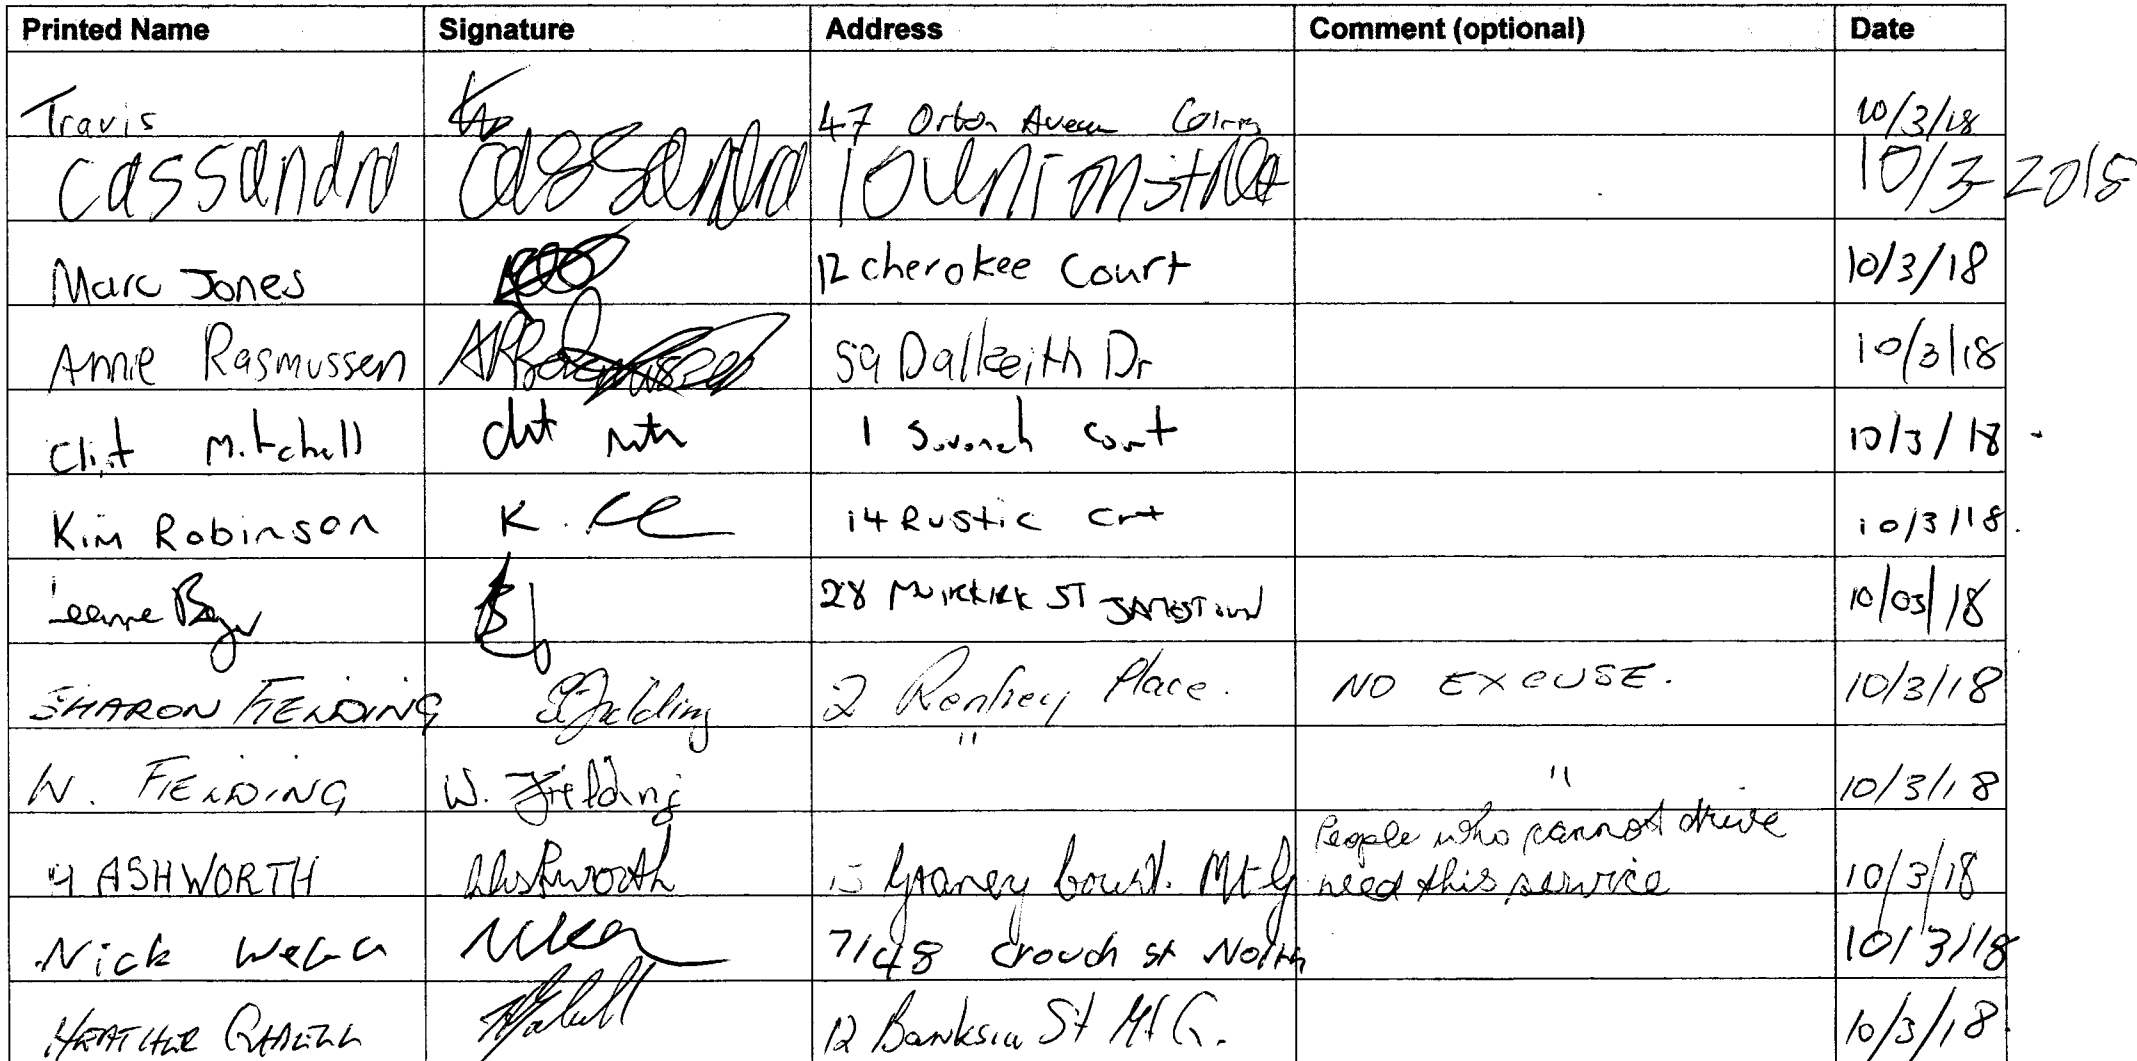 Printed Name Signature Address Comment (optional) Date
Travis 47 Orton 10/3/18
Cassandra Cassandra 10 10/3 2018
Marc Jones 12 cherokee Court 10/3/18
Anne Rasmussen 59 Dalkeith Dr 10/3/18
Clint Mitchell 1 Court 10/3/18
Kim Robinson K. 14 Rustic Crt 10/3/18.
Leanne 28 MUIRKIRK ST JAMESTOWN 10/03/18
SHARON FIELDING S Fielding 2 Renfrey Place. NO EXCUSE. 10/3/18
W. FIELDING W. Fielding " " 10/3/18
ASHWORTH Ashworth Graney Court. Mt G People who cannot drive
need this service 10/3/18
Nick 7/48 Crouch St North 10/3/18
HEATHER 12 Banksia St Mt G. 10/3/18